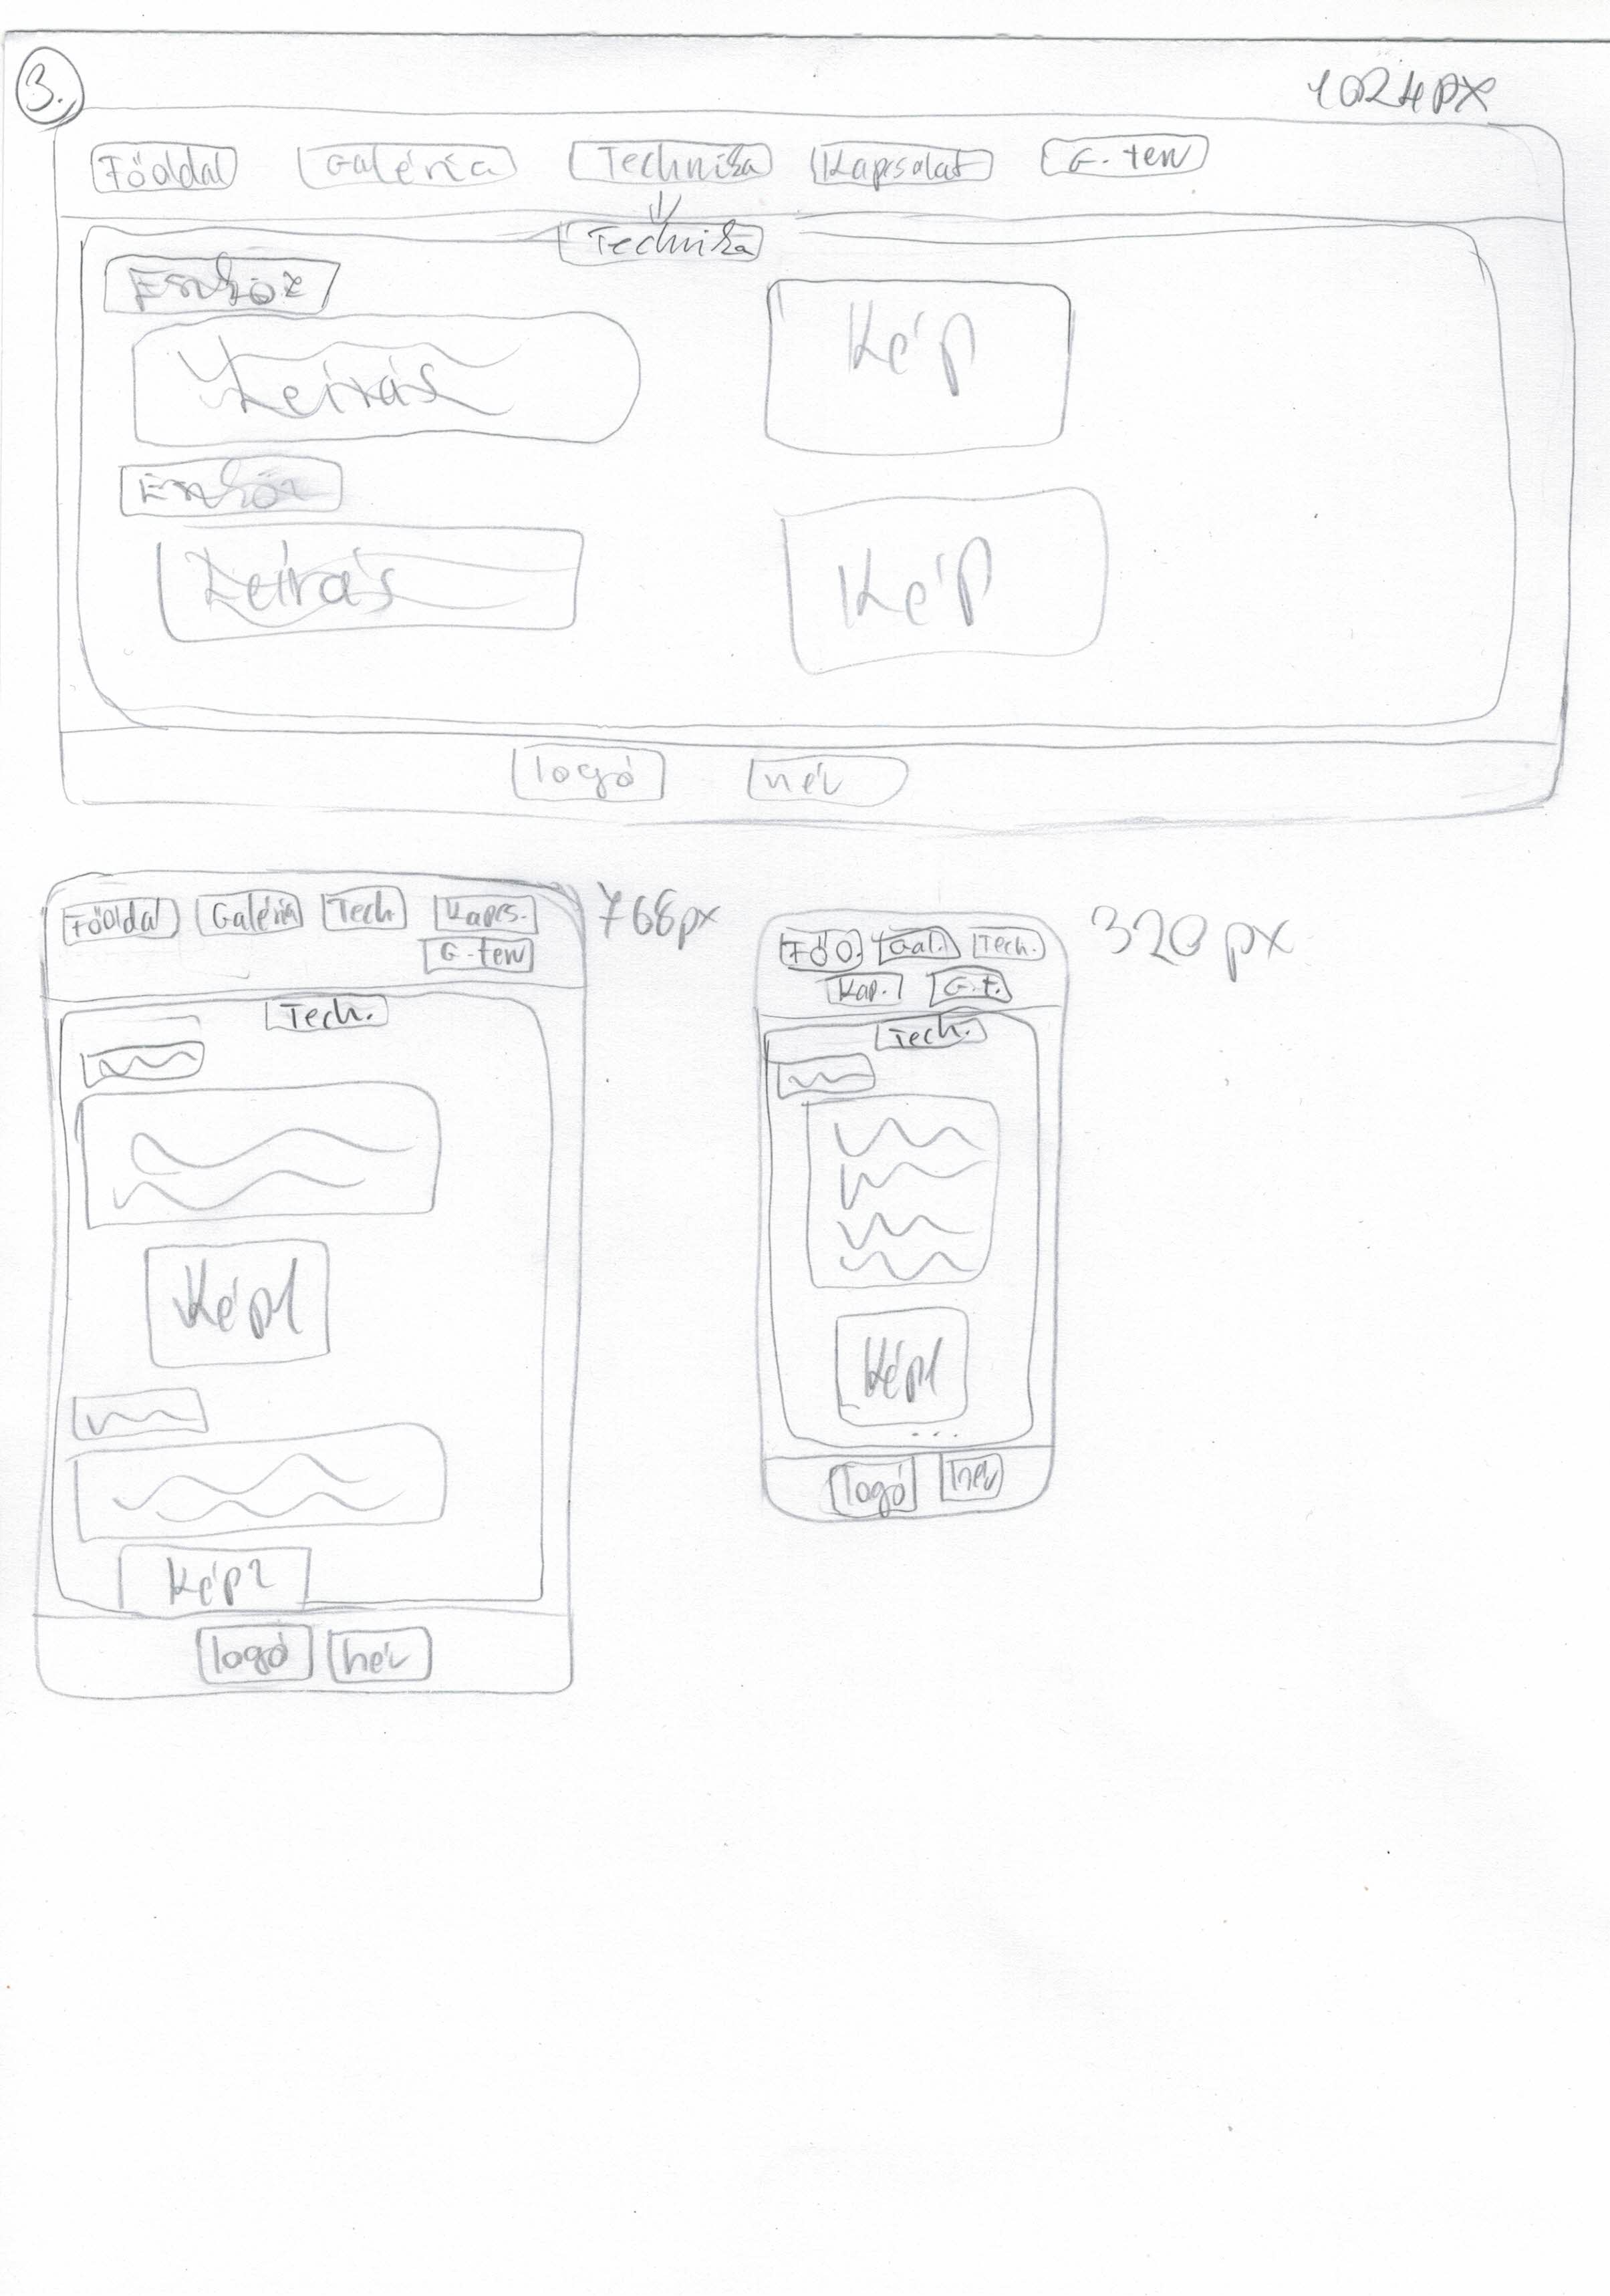 3.
1024px
Főoldal Galéria Technika Kapcsolat G. terv
Technika
Eszköz
Leírás
Kép
Eszköz
Leírás
Kép
logó név
768px
Főoldal Galéria Tech. Kapcs.
G. terv
Tech.
Kép1
Kép2
logó név
320px
FŐO. Gal. Tech.
Kap. G.t.
Tech.
Kép1
...
logó név